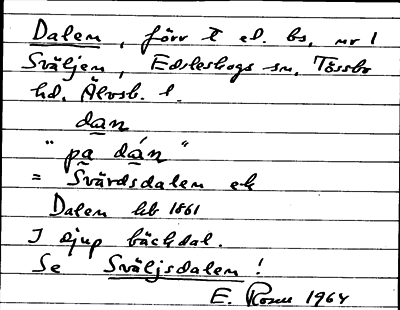 Dalem, förr t ed. bs. nr 1
Sväljen, Edsleskogs sn. Tössbo
hd. Älvsb. l.
dan
"pa dán"
= Svärdsdalem ek
Dalem hb 1861
I djup bäckdal.
Se Sväljsdalem!
E. Rosen 1964